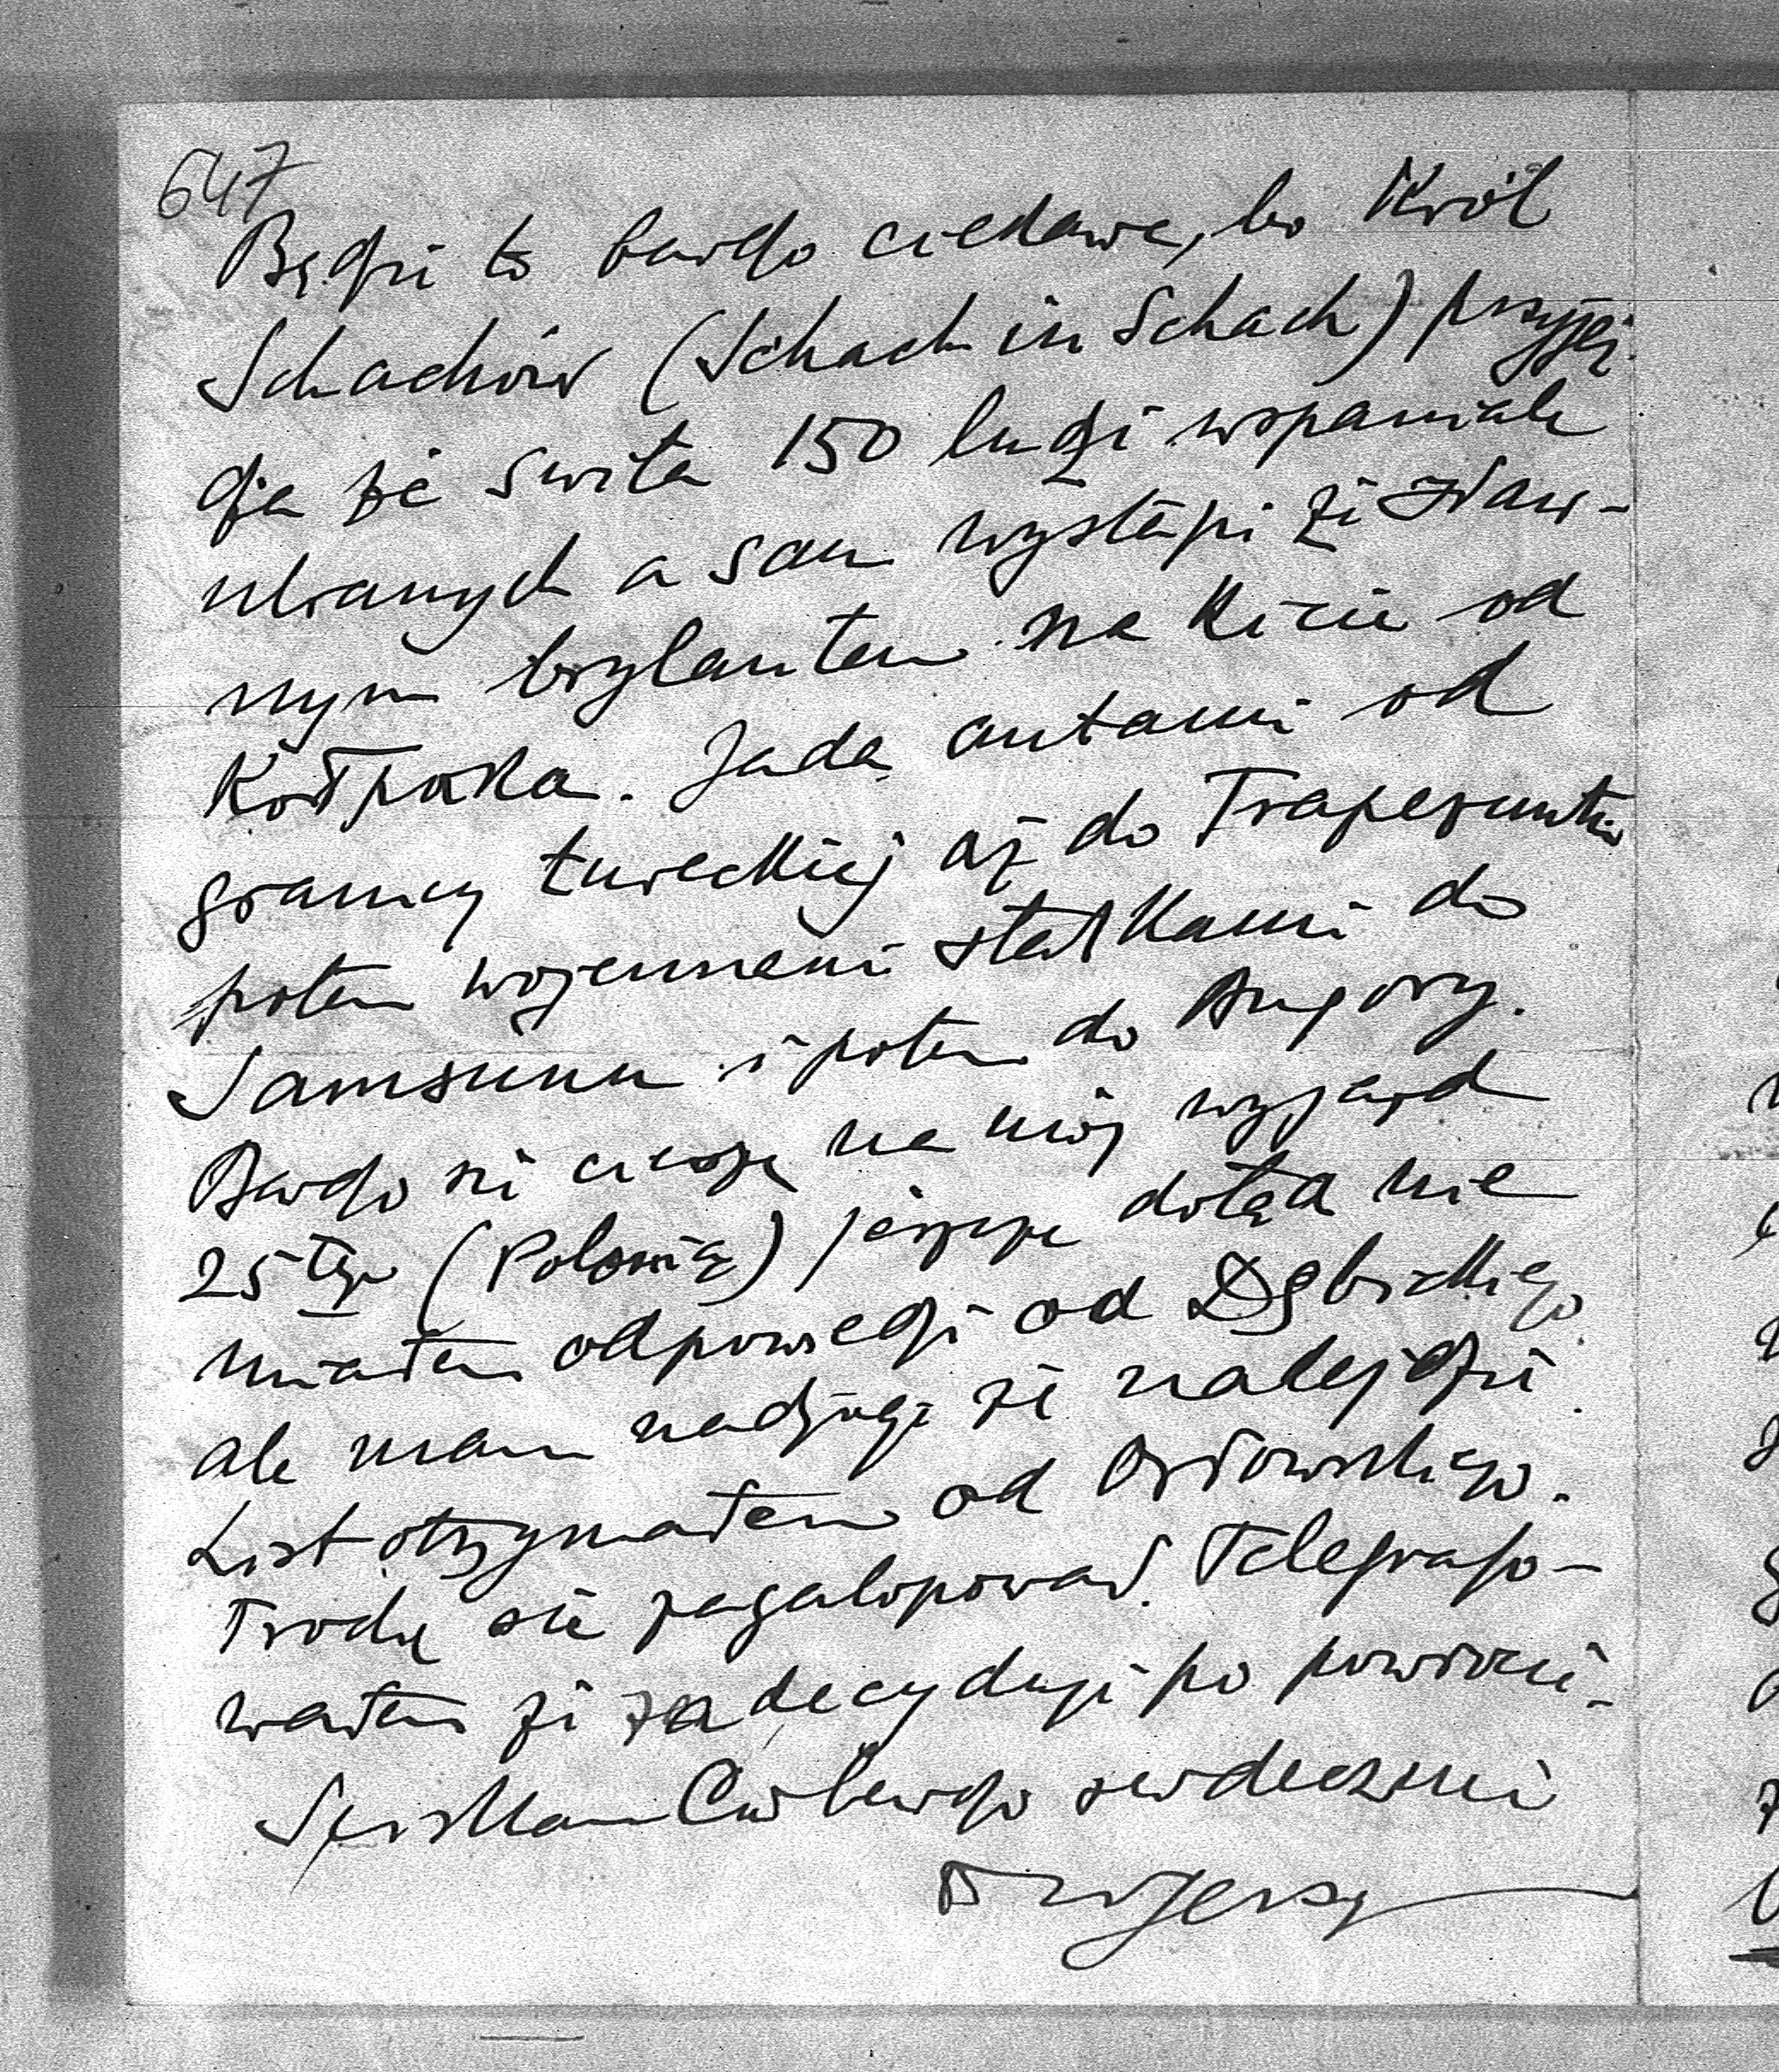 647
Będzie to bardzo ciekawe, bo Król
Schachów (Schach in Schach) przyjeż-
dża ze świtą 150 ludzi wspaniale
ubranych a sam wystąpi ze sław-
nym brylantem na kicie od
Kołpaka. Jadą autami od
granicy tureckiej aż do Trapezuntu
potem wojennemi statkami do
Samsunu i potem do Angory.
Bardzo się cieszę na mój wyjazd
25tego (Polonią) jeszcze dotąd nie
miałem odpowiedzi od Dębickiego
ale mam nadzieję że nadejdzie.
List otrzymałem od Orłowskiego.
Trochę się zagalopował. Telegrafo-
wałem że zadecyduję po powrocie.
Ściskam Cię bardzo serdecznie
Jerzy